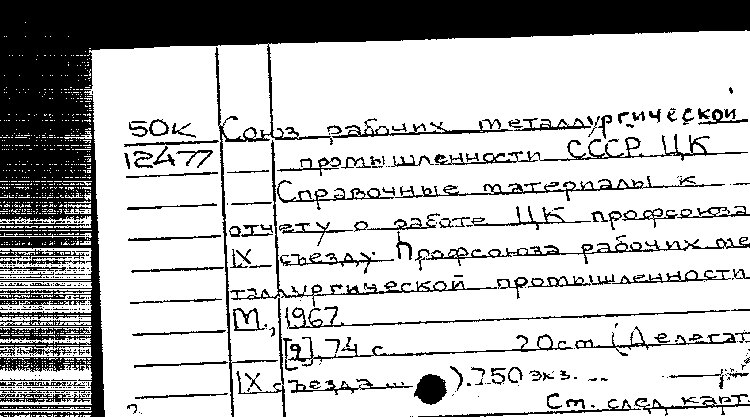 50К Союз рабочих металлургической
12477 промышленности СССР. ЦК
Справочные материалы к
отчету о работе ЦК профсоюза
IX съезду Профсоюза рабочих ме
таллургической промышленности
М., 1967.
[2], 74 с. 20 см. (Делегат
IX съезда ... ). 750 экз.
См. след. карт